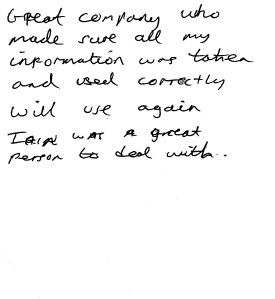 Great company who
made sure all my
information was taken
and used correctly
will use again
Iain was a great
person to deal with..